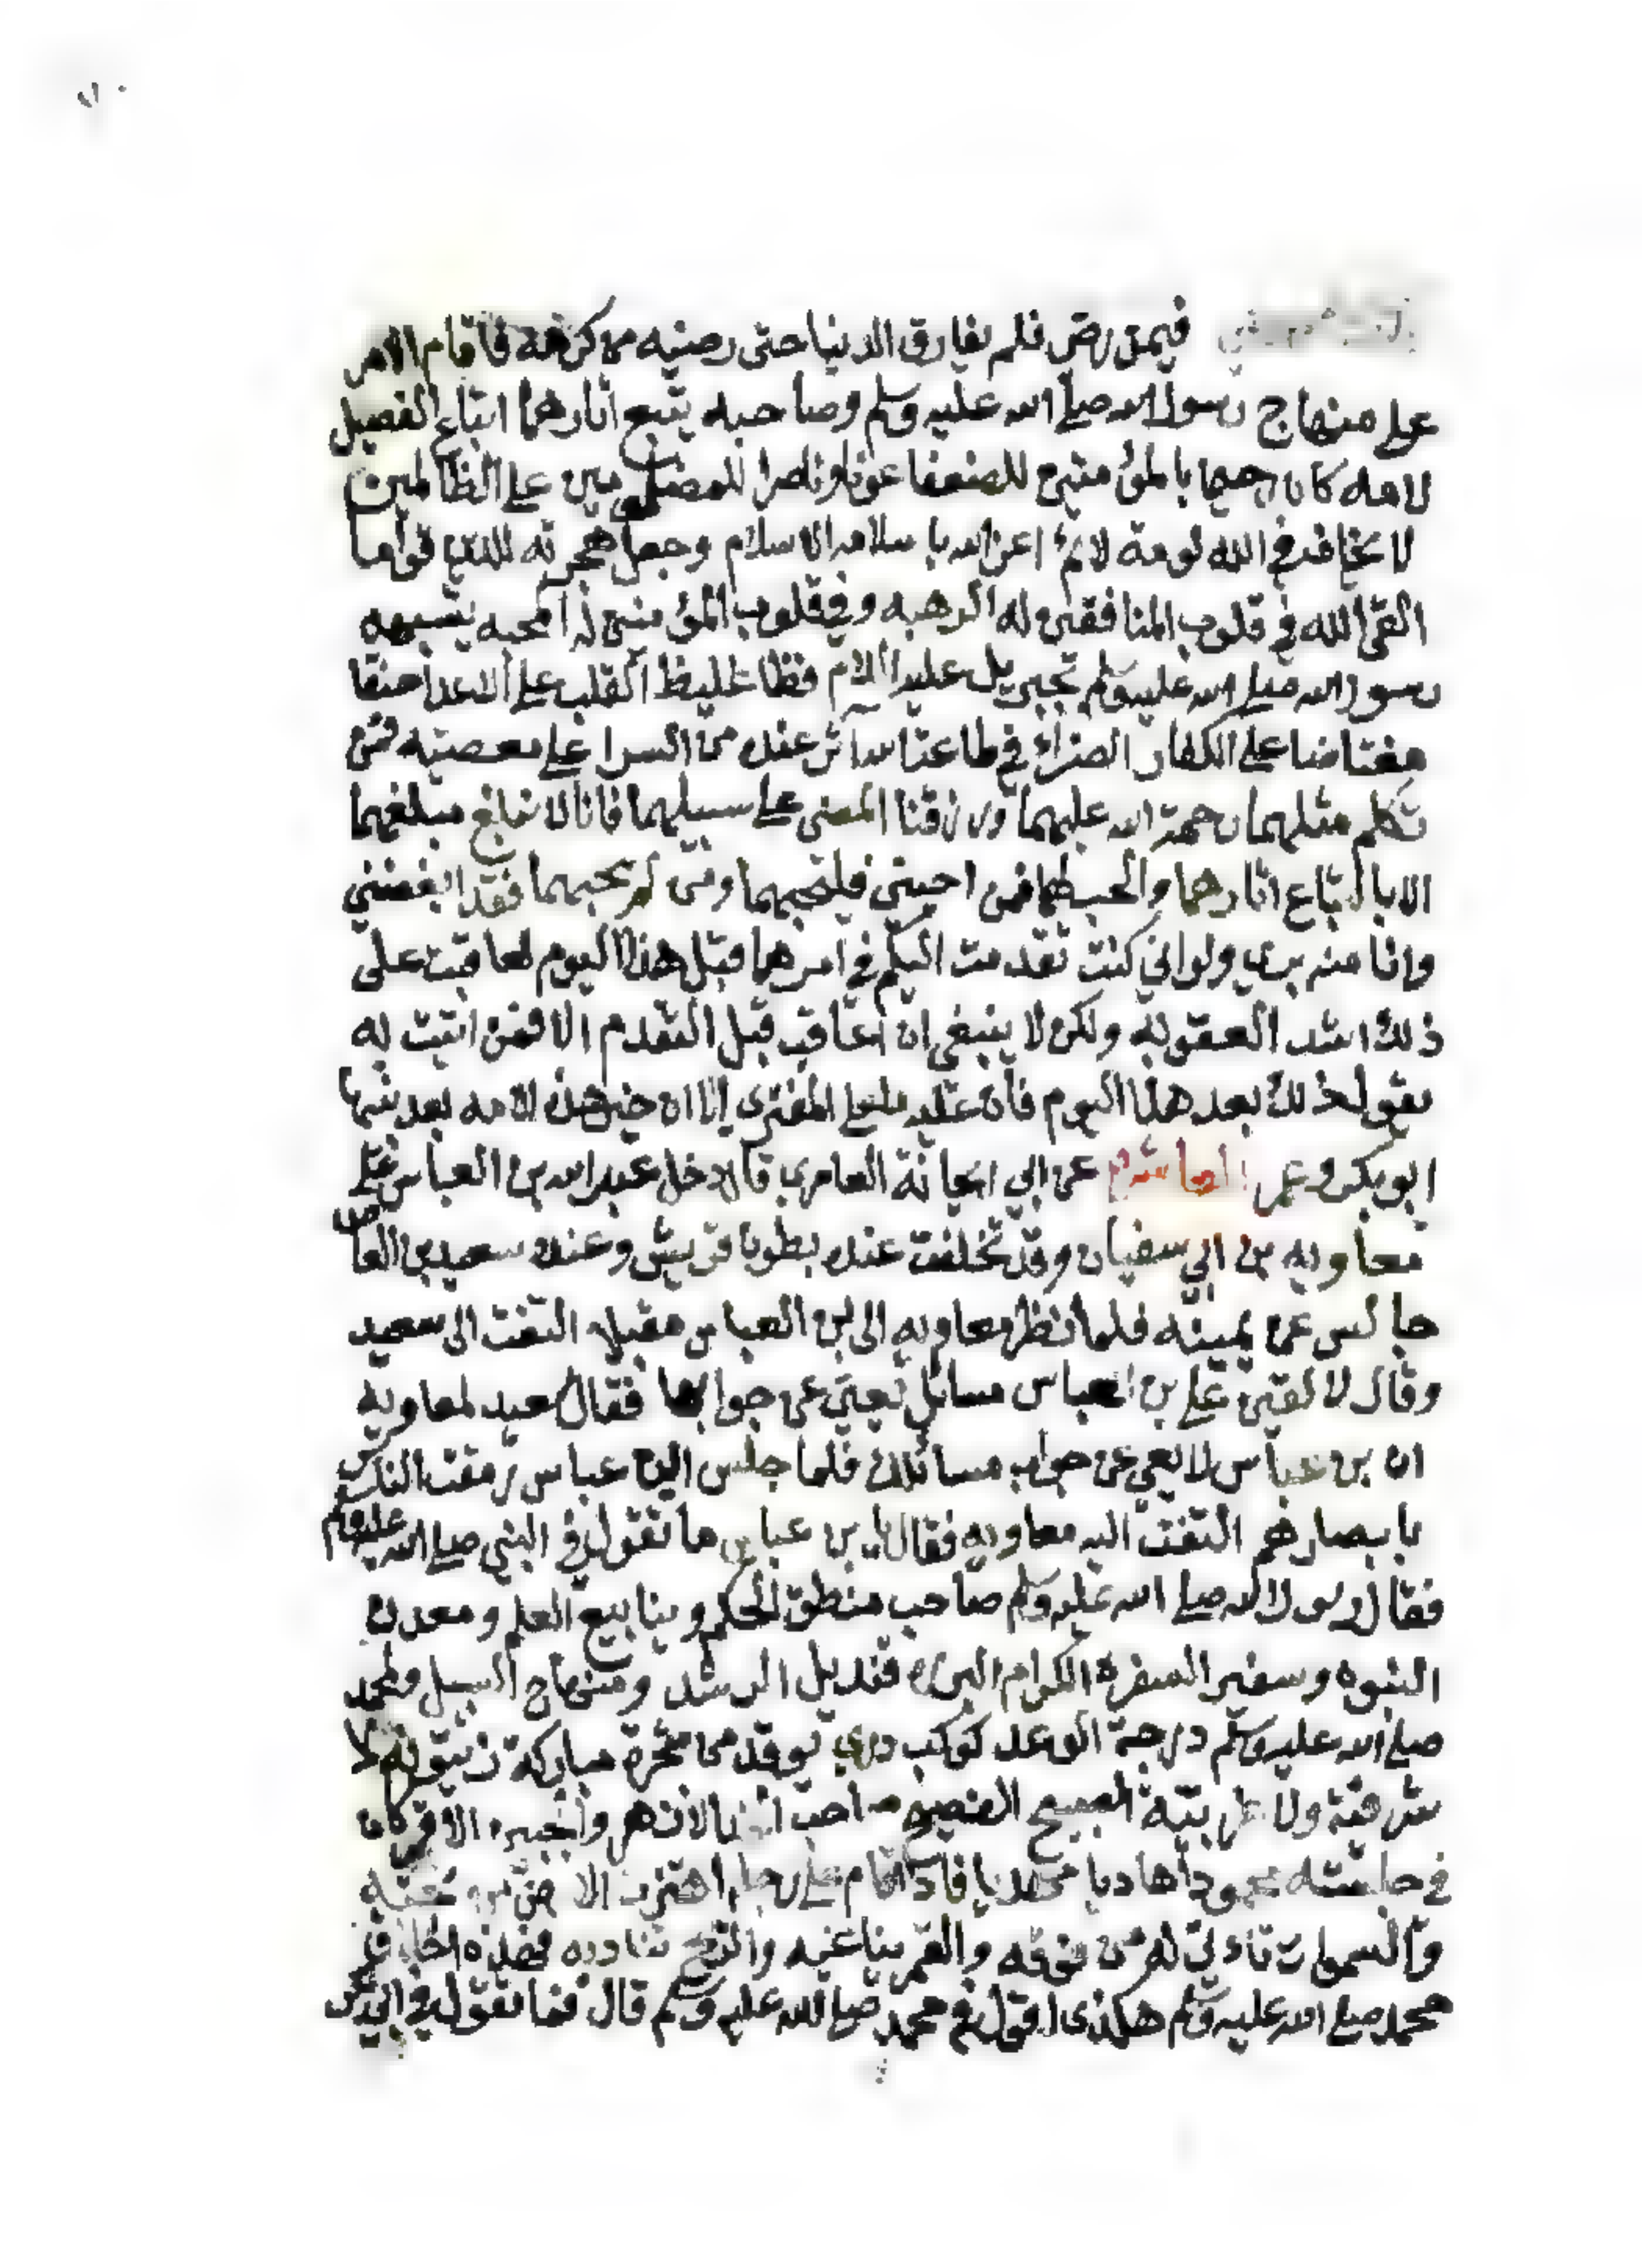 فيمن رضي فلم يفارق الدنيا حتى رضيه من كرهه فاقام الامر
على منهاج رسول الله صلى الله عليه وسلم وصاحبه يتبع اثارهما اتباع الفصيل
لامه كان رحيما بالمؤمنين للضعفا عونا وناصرا للمظلومين على الظالمين
لا يخاف في الله لومة لائم اعز الله باسلامه الاسلام وجعل هجرته للدين قواما
القى الله في قلوب المنافقين له الرهبه وفي قلوب المؤمنين له المحبه يشبهه
رسول الله صلى الله عليه وسلم بجبريل عليه السلام فظا غليظ القلب على الاعدا حنقا
مغتاضا على الكفار الضراء في طاعة الله آثر عنده من السرا على معصيته فمن
لكم مثلهما رحمة الله عليهما ورزقنا المضي على سبيلهما فانا لا نبلغ مبلغهما
الا باتباع اثارهما والحب لهما فمن احبني فليحبهما ومن لم يحبهما فقد ابغضني
وانا منه بري ولو اني كنت تقدمت اليكم في امرهما قبل هذا اليوم لعاقبت على
ذلك اشد العقوبه ولكن لا ينبغي ان اعاقب قبل التقدم الا فمن اتيت به
يقول ذلك بعد هذا اليوم فان عليه ما على المفتري الا ان خير هذه الامه بعد نبيها
ابو بكر وعمر العاشر عن ابي العامري قال دخل عبد الله بن العباس على
معاويه بن ابي سفيان وقد تخلفت عنده بطون قريش وعنده سعيد بن العاص
جالس عن يمينه فلما نظر معاويه الى بن العباس مقبلا التفت الى سعيد
وقال لالقين على بن العباس مسائل يعيى عن جوابها فقال سعيد لمعاويه
ان بن عباس لا يعي عن جواب مسائلك فلما جلس ابن عباس رمقت الناس
بابصارهم التفت اليه معاويه فقال يا بن عباس ما تقول في النبي صلى الله عليه وسلم
فقال رسول الله صلى الله عليه وسلم صاحب منطق الحكم وينابيع العلم ومعدن
النبوه وسفير السفرة الكرام البرره قنديل الرشد ومنهاج السبل ومحمد
صلى الله عليه وسلم درجة الوعد كوكب دري يوقد من شجرة مباركة زيتونه لا
شرقية ولا غربية الصبيح الفصيح صاحب الازهر والجبين الاقمر كان
في محمودا هاديا مهديا فاذا قام على رجله اهتزت الارض من تحته
والسموات تاذن له من فوقه والقمر يناغيه والريح تناديه فهذه
محمد صلى الله عليه وسلم هكذى اقول في محمد صلى الله عليه وسلم قال فما تقول في ابي بكر